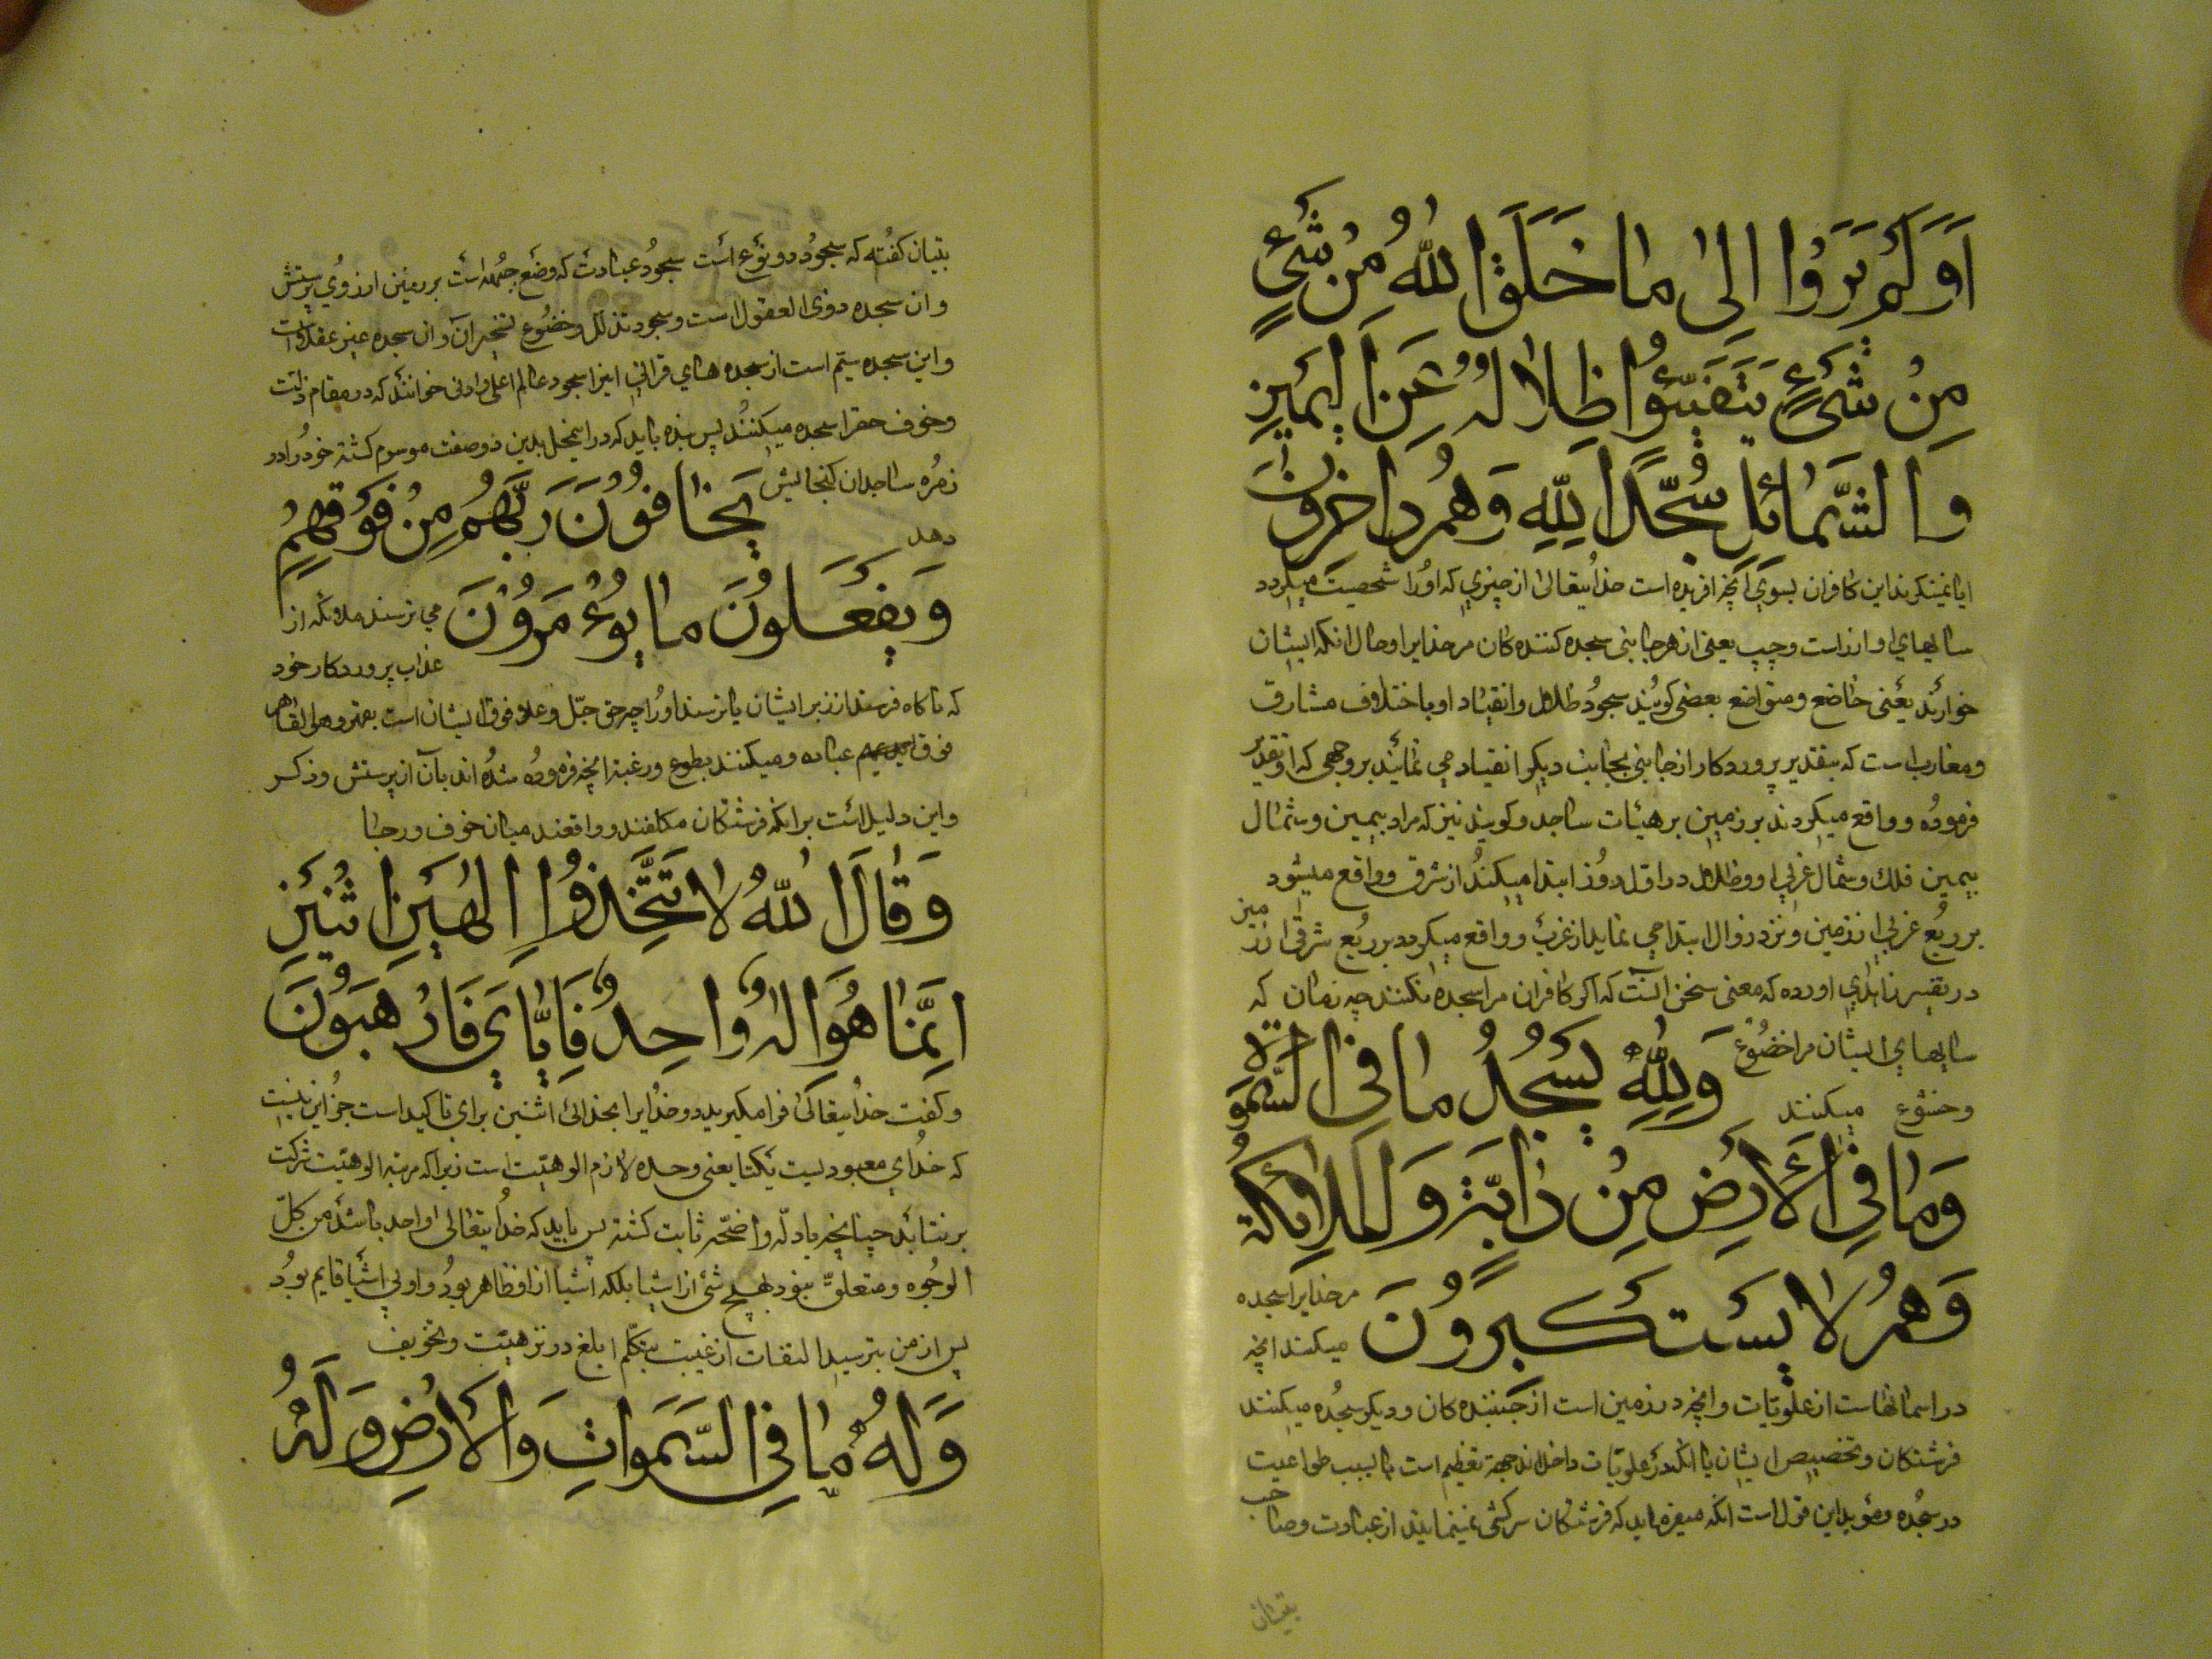 اَوَلَمْ يَرَوْا اِلىٰ مٰا خَلَقَ اللّٰهُ مِنْ شَيْءٍ
مِنْ شَيْءٍ يَتَفَيَّؤُا ظِلالُهُ عَنِ اليَمينِ
وَالشَّمٰائِلِ سُجَّدًا لِلّٰهِ وَهُمْ داخِرُونَ
ايا نمينكرند اين كافران بسوي آنچه افريده است خدايتعالى از چيزي كه اورا شخصيت ميكردد
سايهاي او از راست وچپ يعنى از هر جانبى سجده كننده كان مر خدايرا وحال انكه ايشان
خوارند يعنى خاضع ومتواضع بعضى كويند سجود ظلال وانقياد او باختلاف مشارق
ومغارب است كه بتقدير پروردكار از جانبى بجانب ديكر انقياد مي نمايند بر وجهى كه او تقدير
فرموده وواقع ميكردند بر زمين بر هيئات ساجد وكويند نيز كه مراد بيمين وشمال
يمين فلك وشمال غربي او وظلال در اول روز ابتدا ميكنند از شرق وواقع ميشود
بر ربع غربي از زمين ونزد زوال ابتدا مي نمايد از غرب وواقع ميكردد بر ربع شرقى از زمين
در تفسير زاهدي اورده كه معنى سخن انست كه اكر كافران مرا سجده نكنند چه زيان كه
سايهاي ايشان مرا خضوع
وخشوع ميكنند
وَلِلّٰهِ يَسْجُدُ مٰا فى السَّمٰوٰاتِ
وَمٰا فِى الْاَرْضِ مِنْ دٰابَّةٍ وَالْمَلٰائِكَةُ
وَهُمْ لٰا يَسْتَكْبِرُونَ
مر خدايرا سجده
ميكنند انچه
در اسمانهاست از علويات وانچه در زمين است از جنبنده كان وديكر سجده ميكنند
فرشتكان وتخصيص ايشان با آنكه در علويات داخل اند جهة تعظيم است يا بسبب طواعيت
در سجده ومؤيد اين قول است انكه ميفرمايد كه فرشتكان سركشى نمينمايند از عبادت وصاحب
بتيان
بتيان كفته كه سجود دو نوع است سجود عبادت كه وضع جبهه است بر زمين از روي پرستش
وان سجده ذوى العقول است وسجود تذلل وخضوع تسخير ان وان سجده غير عقلا است
واين سجده سيم است از سجده هاي قراني اينرا سجود عالم اعلى وادنى خوانند كه در مقام ذلت
وخوف حقرا سجده ميكنند پس بنده بايد كه در اين محل بدين دو صفت موسوم كشته خود را در
زمره ساجدان كنجايش
دهد
يَخٰافُونَ رَبَّهُمْ مِنْ فَوْقِهِمْ
وَيَفْعَلُونَ مٰا يُؤْمَرُوْنَ
مي ترسند ملائكه از
عذاب پروردكار خود
كه ناكاه فرستد از زبر ايشان يا ترسند اورا چه حق جل وعلا فوق ايشان است بقهر وهو القاهر
فوق عباده وميكنند بطوع ورغبة انچه فرموده شده اند بآن از پرستش وذكر
واين دليل است بر آنكه فرشتكان مكلفند وواقعند ميان خوف ورجا
وَقٰالَ اللّٰهُ لٰا تَتَّخِذُوا اِلٰهَيْنِ اثْنَيْنِ
اِنَّمٰا هُوَ اِلٰهٌ وٰاحِدٌ فَاِيّٰايَ فَارْهَبُونَ
وكفت خدايتعالى فرا مكيريد دو خدايرا بخدائى اثنين براي تاكيد است جز اين نيست
كه خداي معبوديست يكتا يعنى وحده لازم الوهيت است زيرا كه مرتبه الوهيت شركت
بر نتابد چنانچه بادله واضحه ثابت كشته پس بايد كه خدايتعالى او احد باشد من كل
الوجوه ومتعلق نبود بهيچ شئ از اشيا بلكه اشيا از او ظاهر بود واولي اشيا قايم بود
پس از من بترسيد التفات از غيبت بتكلم ابلغ در ترهيب وتخويف
وَلَهُ مٰا فِى السَّمٰوٰاتِ وَالْاَرْضِ وَلَهُ